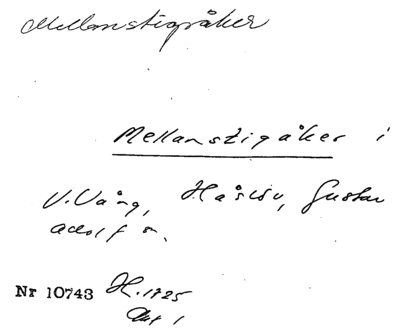 Mellanstigsåker
Mellanstigåker i
V. Vång, Haslöv, Gustav
Adolf sn.
Nr 10743 H. 1925
Akt 1